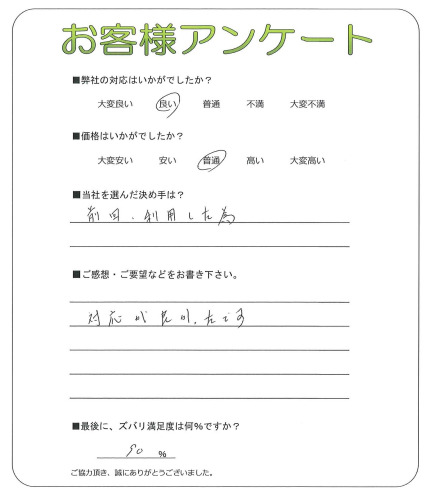 お客様アンケート
■弊社の対応はいかがでしたか?
大変良い 良い 普通 不満 大変不満
■価格はいかがでしたか?
大変安い 安い 普通 高い 大変高い
■当社を選んだ決め手は?
前回、利用した為
■ご感想・ご要望などをお書き下さい。
対応が良かったです
■最後に、ズバリ満足度は何%ですか?
90 %
ご協力頂き、誠にありがとうございました。